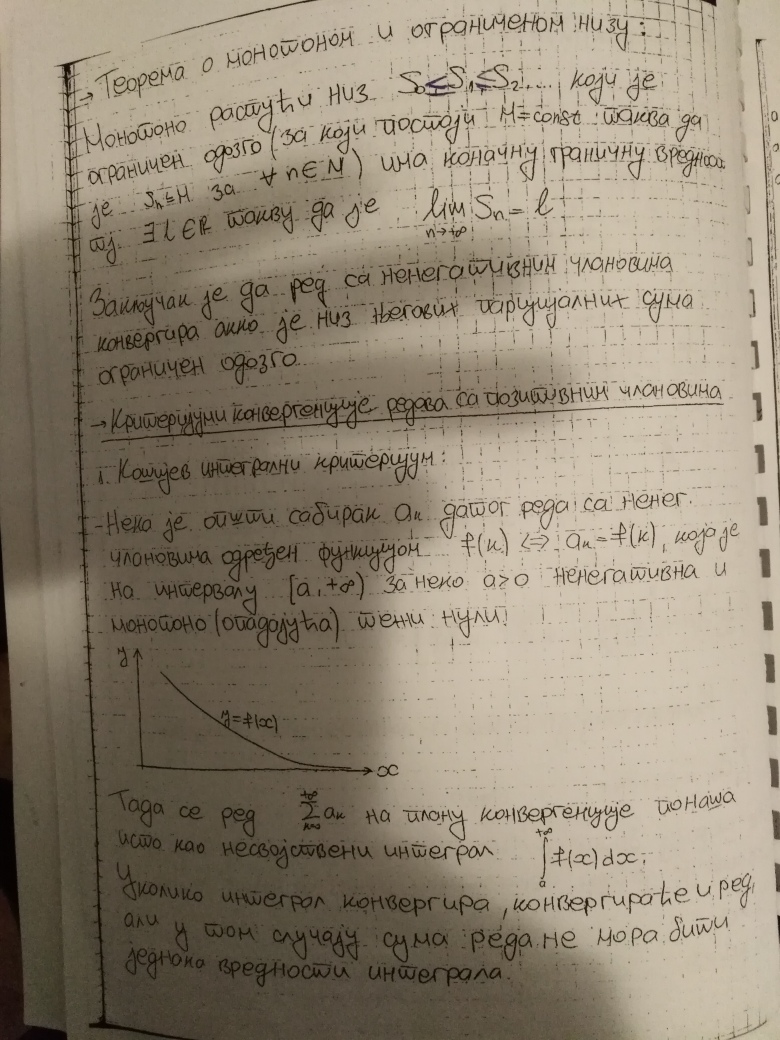 → Теорема о монотоном и ограниченом низу:
Монотоно растући низ S₀≤S₁≤S₂... који је
ограничен одозго (за који постоји M=const таква да
је Sₙ≤M за ∀ n∈N) има коначну граничну вредност
тј. ∃ l ∈ R такву да је lim Sₙ = l
n→+∞
Закључак је да ред са ненегативним члановима
конвергира акко је низ његових парцијалних сума
ограничен одозго.
→ Критеријуми конвергенције редова са позитивним члановима
1. Кошијев интегрални критеријум:
- Нека је општи сабирак aₖ датог реда са ненег.
члановима одређен функцијом f(k) ⇔ aₖ = f(k), која је
на интервалу [a, +∞) за неко a>0 ненегативна и
монотоно (опадајућа) тежи нули!
y
y=f(x)
x
Тада се ред ∑_{k=0}^{+∞} aₖ на плану конвергенције понаша
исто као несвојствени интеграл ∫_{a}^{+∞} f(x) dx;
Уколико интеграл конвергира, конвергираће и ред,
али у том случају сума реда не мора бити
једнака вредности интеграла.